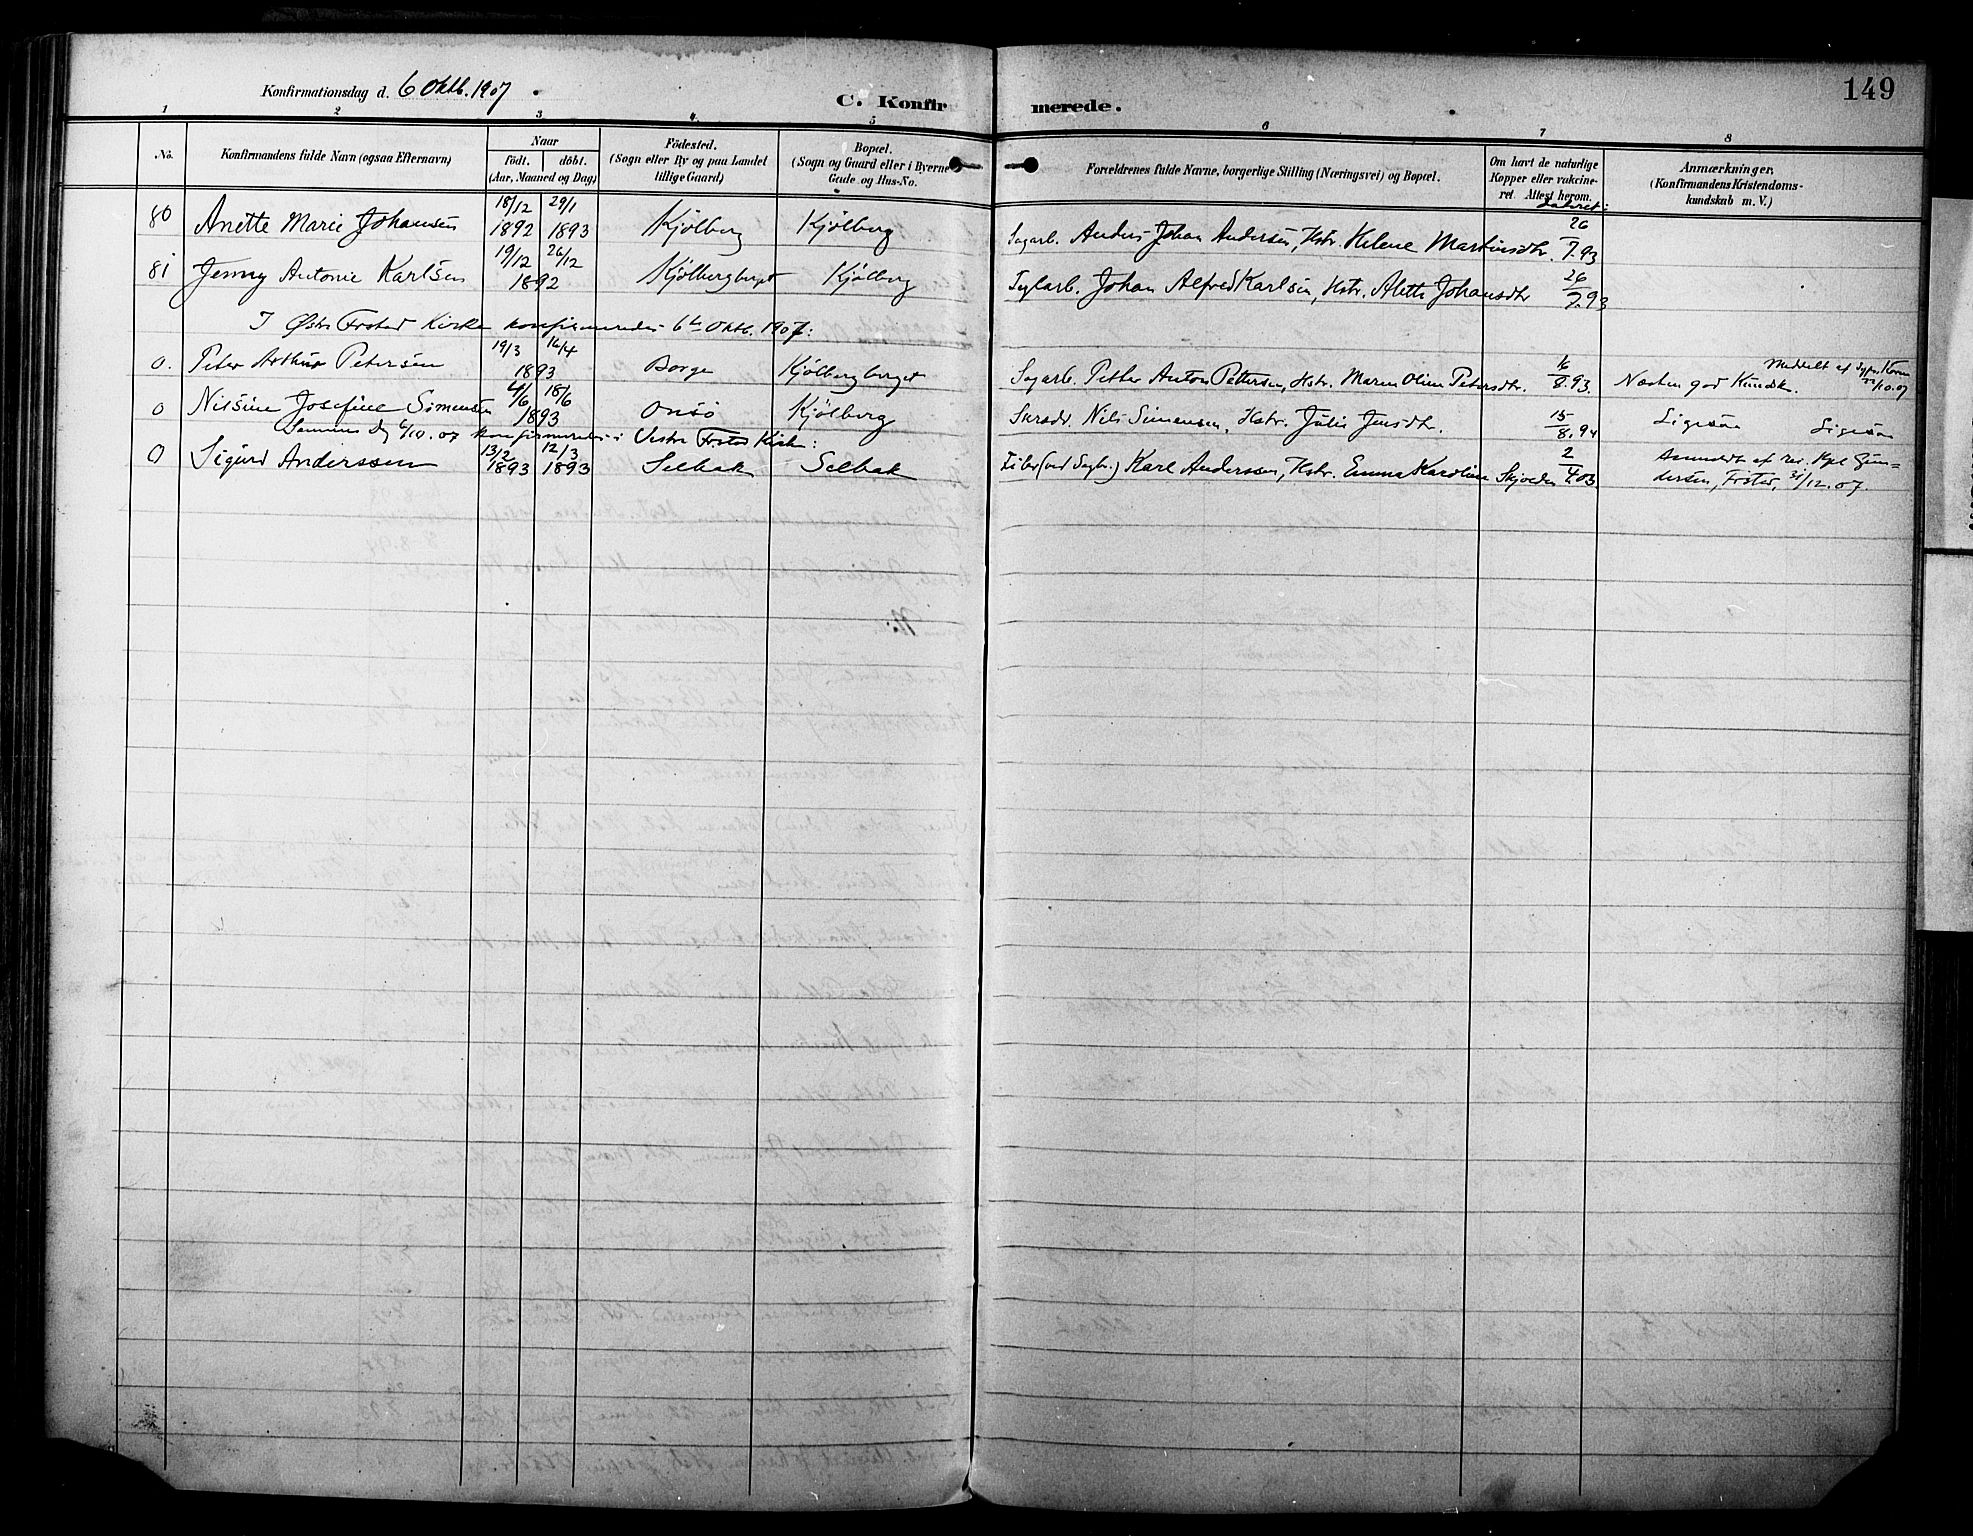 Konfirmationsdag d. 6 Oktb. 1907
C. Konfirmerede.
149
1 2 3 4. 5 6 7 8
No.
Konfirmandens fulde Navn (ogsaa Efternavn)
Naar
födt. döbt.
(Aar, Maaned og Dag)
Födested.
(Sogn eller By og paa Landet
tillige Gaard)
Bopæl.
(Sogn og Gaard eller i Byerne
Gade og Hus-No.
Forældrenes fulde Navne, borgerlige Stilling (Næringsvei) og Bopæl.
Om havt de naturlige
Kopper eller vakcine-
ret. Attest herom.
Dateret:
Anmærkninger.
(Konfirmandens Kristendoms-
kundskab m. V.)
80 Anette Marie Johansen 18/12 1892 29/1 1893 Kjölberg Kjölberg Sagarb. Anders Johan Andersen, Hstr. Helene Martinsdtr. 26/7.93
81 Jenny Antonie Karlsen 19/12 26/12 1892 Kjölbergberget Kjölberg Teglarb. Johan Alfred Karlsen, Hstr. Alette Johansdtr 26/7.93
I Østre Frstad Kirke konfirmeredes 6te Oktb. 1907:
0. Peter Arthur Petersen 19/3 16/4 1893 Borge Kjölbergberget Sagarb. Petter Anton Pettersen, Hstr. Maren Oline Petersdtr. 6/8.93. Næsten god Kundsk. Meddelt af /10.07
0 Nilsine Josefine Simensen 4/6 18/6 1893 Onsö Kjölberg Skrædr. Nils Simensen, Hstr. Julie Jensdtr. 15/8.94 Ligesaa Ligesaa
Samme Dag 6/10.07 konfirmeredes i Vestre Frstad Kirke:
0 Sigurd Anderssen 13/2 1893 12/3 1893 Selbak Selbak (ved Sagbr.) Karl Anderssen, Hstr. Emma Karoline 2/4.03 Anmeldt af res. Kpl Gun-
dersen, Frstad, 31/12.07.